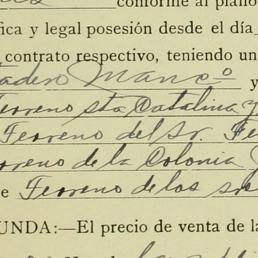 conforme al plano
fica y legal posesión desde el día
contrato respectivo, teniendo un
Manso y
Terreno sta Catalina y
Terreno del Sr.
Terreno de la Colonia
e Terreno de los
UNDA:—El precio de venta de la